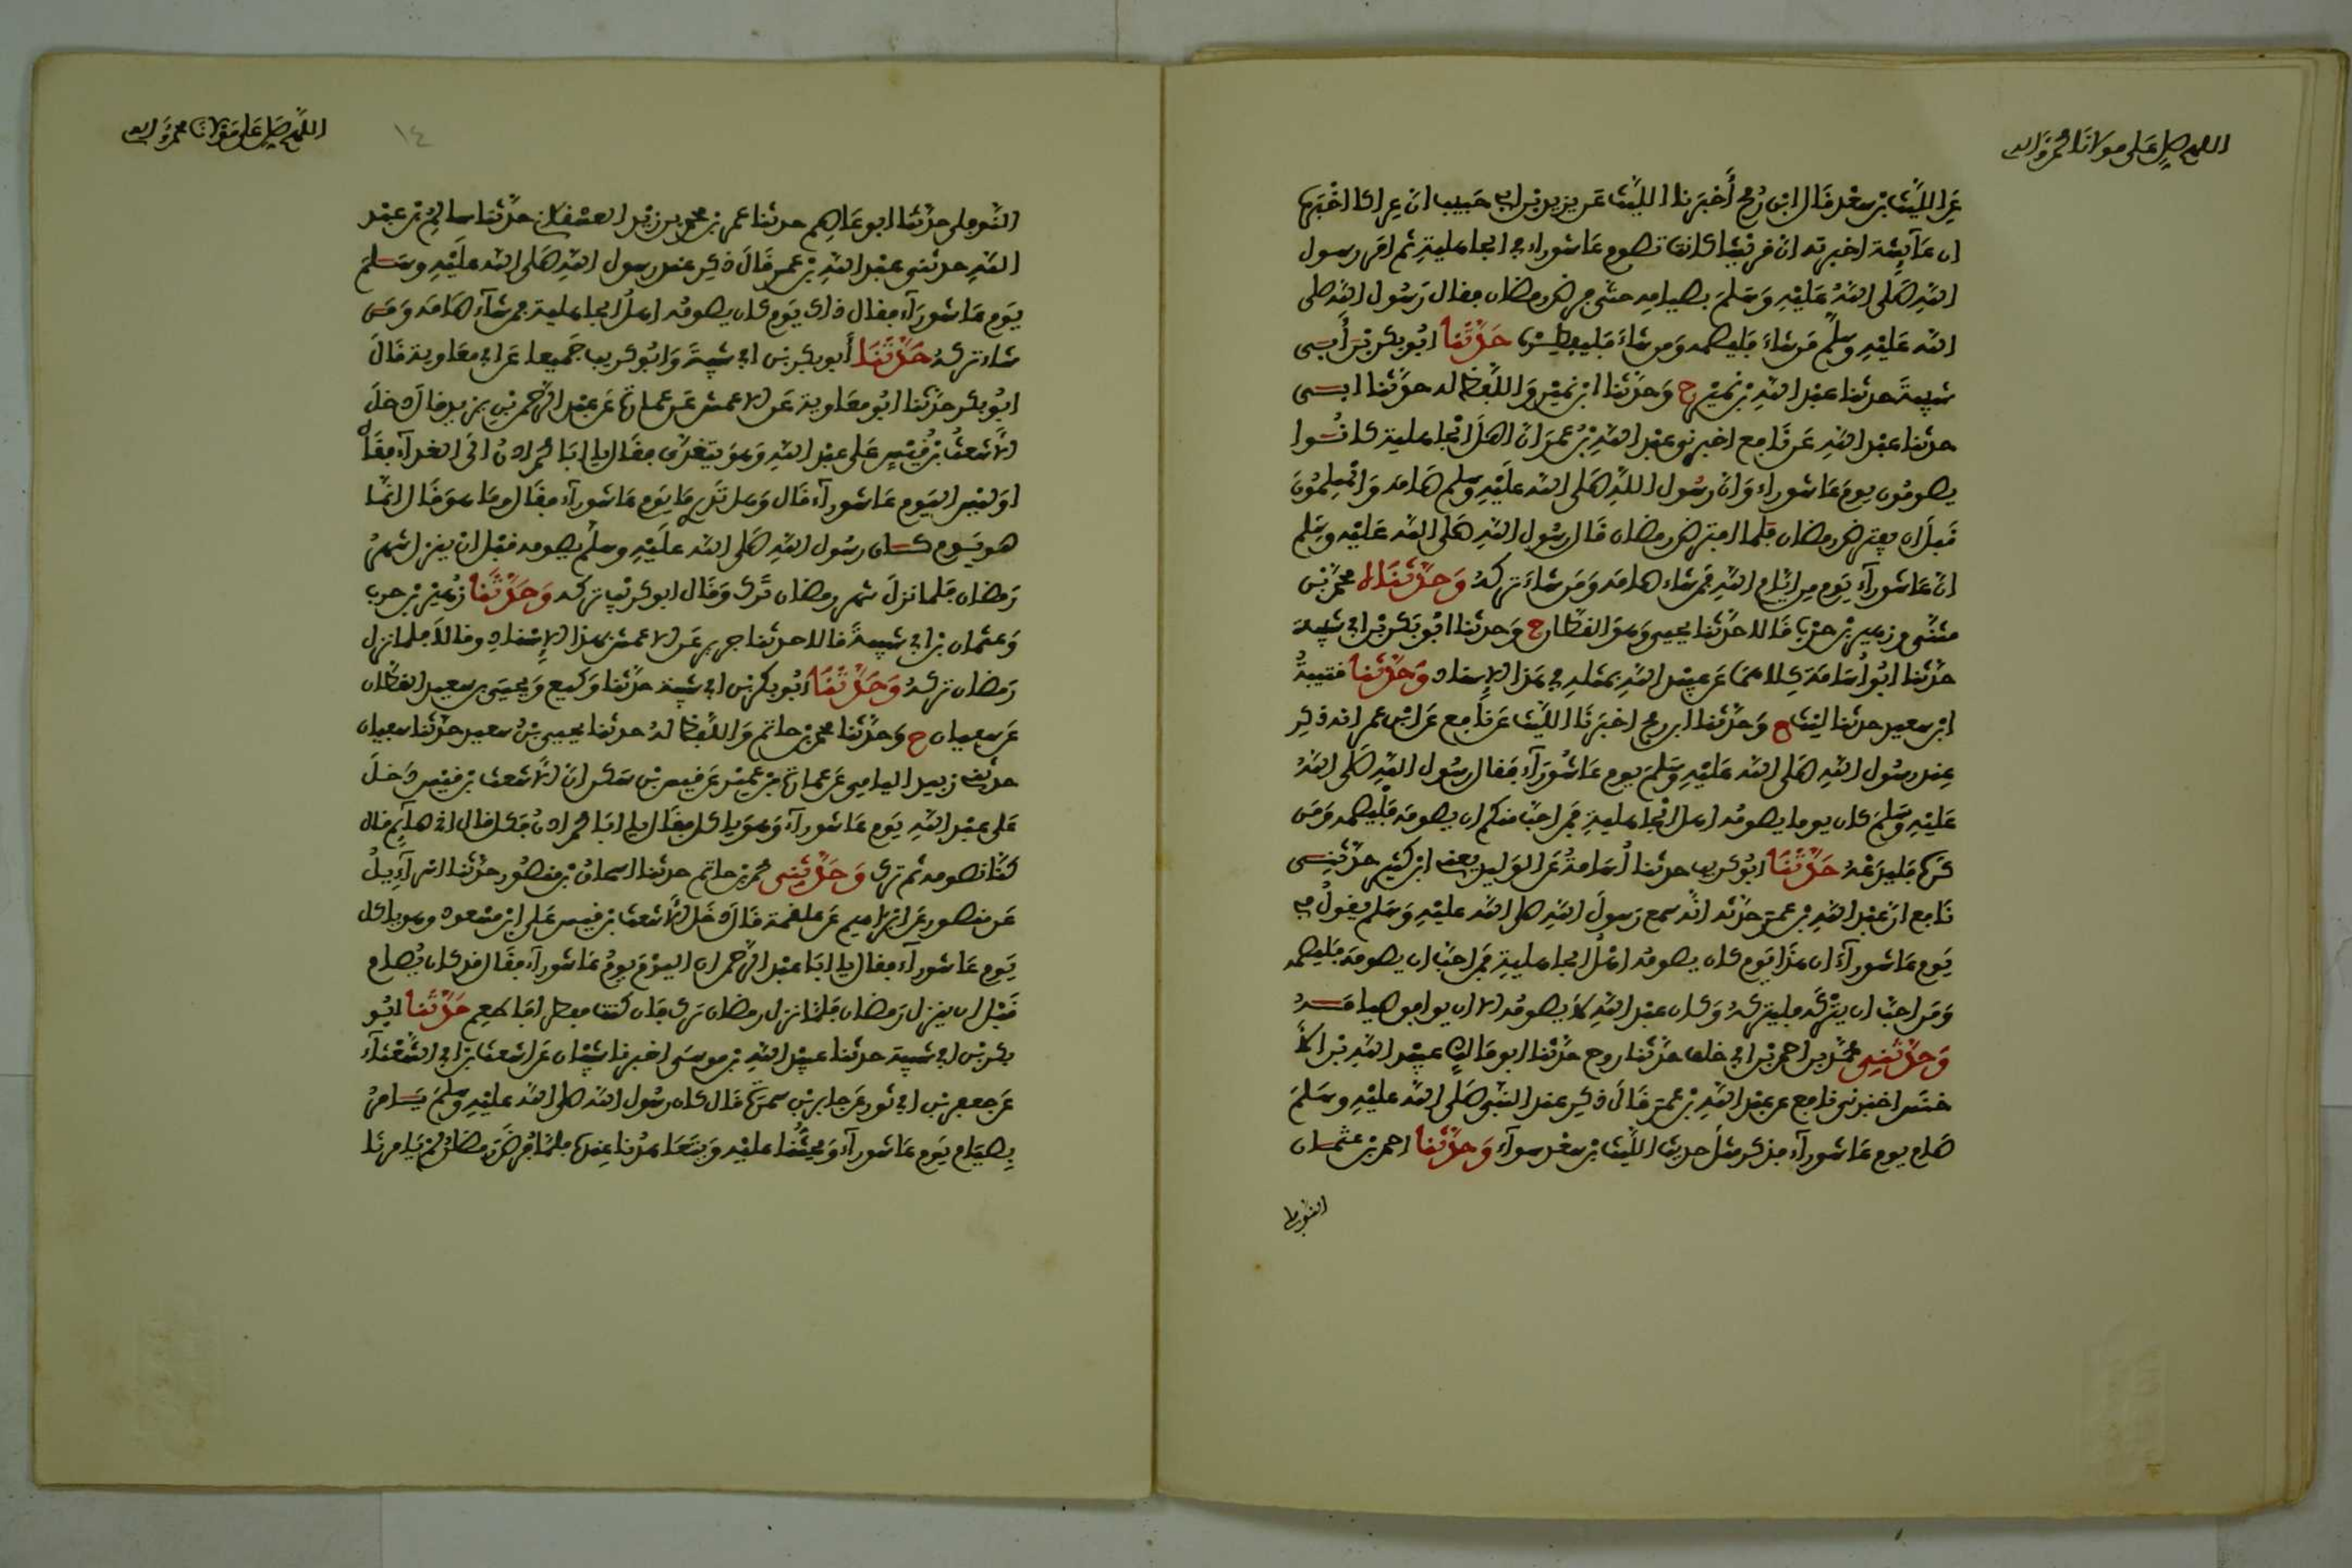 اللهم صل على مولانا محمد واله
عن الليث بن سعد قال ابن رمح أخبرنا الليث عن يزيد بن ابي حبيب ان عراكا اخبره
ان عآيشة اخبرته ان قريشا كانت تصوم عاشوراء في الجاهلية ثم امر رسول
الله صلى الله عليه وسلم بصيامه حتى فرض رمضان فقال رسول الله صلى
الله عليه وسلم من شاء فليصمه ومن شاء فليفطره حدثنا ابو بكر بن أبي
شيبة حدثنا عبد الله بن نمير ح وحدثنا ابن نمير واللفظ له حدثنا ابي
حدثنا عبيد الله عن نافع اخبرني عبد الله بن عمر ان اهل الجاهلية كانوا
يصومون يوم عاشوراء وان رسول الله صلى الله عليه وسلم صامه والمسلمون
قبل ان يفترض رمضان فلما افترض رمضان قال رسول الله صلى الله عليه وسلم
ان عاشورآء يوم من ايام الله فمن شاء صامه ومن شاء تركه وحدثناه محمد بن
مثنى وزهير بن حرب قالا حدثنا يحيى وهو القطان ح وحدثنا ابو بكر بن ابي شيبة
حدثنا ابو أسامة كلاهما عن عبيد الله بمثله في هذا الإسناد وحدثنا قتيبة
ابن سعيد حدثنا ليث ح وحدثنا ابن رمح اخبرنا الليث عن نافع عن ابن عمر انه ذكر
عند رسول الله صلى الله عليه وسلم يوم عاشورآء فقال رسول الله صلى الله
عليه وسلم كان يوما يصومه اهل الجاهلية فمن احب منكم ان يصومه فليصمه ومن
كره فليدعه حدثنا ابو كريب حدثنا أسامة عن الوليد يعني ابن كثير حدثني
نافع ان عبد الله بن عمر حدثه انه سمع رسول الله صلى الله عليه وسلم يقول في
يوم عاشورآء ان هذا يوم كان يصومه اهل الجاهلية فمن احب ان يصومه فليصمه
ومن احب ان يتركه فليتركه وكان عبد الله لا يصومه الا ان يوافق صيامه
وحدثني محمد بن احمد بن ابي خلف حدثنا روح حدثنا ابو مالك عبيد الله بن الا
خنس اخبرني نافع عن عبد الله بن عمر قال ذكر عند النبي صلى الله عليه وسلم
صام يوم عاشورآء فذكر مثل حديث الليث بن سعد سوآء وحدثنا احمد بن عثمان
النوفلي
اللهم صل على مولانا محمد واله
١٤
النوفلي حدثنا ابو عاصم حدثنا عمر بن محمد بن زيد العسقلان حدثنا سالم بن عبد
الله حدثني عبد الله بن عمر قال ذكر عند رسول الله صلى الله عليه وسلم
يوم عاشورآء فقال ذاك يوم كان يصومه اهل الجاهلية فمن شآء صامه ومن
شاء تركه حدثنا أبو بكر بن ابي شيبة وابو كريب جميعا عن ابي معاوية قال
ابو بكر حدثنا ابو معاوية عن الاعمش عن عمارة عن عبد الرحمن بن يزيد قال دخل
الأشعث بن قيس على عبد الله وهو يتغدى فقال يا ابا محمد ادن الى الغدآء فقال
اوليس اليوم عاشورآء قال وهل تدري ما يوم عاشورآء فقال وما هو قال انما
هو يوم كان رسول الله صلى الله عليه وسلم يصومه قبل ان ينزل شهر
رمضان فلما نزل شهر رمضان ترك وقال ابو كريب تركه وحدثنا زهير بن حرب
وعثمان بن ابي شيبة قالا حدثنا جرير عن الاعمش بهذا الإسناد وقالا فلما نزل
رمضان تركه وحدثنا ابو بكر بن ابي شيبة حدثنا وكيع ويحيى بن سعيد القطان
عن سفيان ح وحدثنا محمد بن حاتم واللفظ له حدثنا يحيى بن سعيد حدثنا سفيان
حدثني زبيد اليامي عن عمارة بن عمير عن قيس بن سكن ان الأشعث بن قيس دخل
على عبد الله يوم عاشورآء وهو ياكل فقال يا ابا محمد ادن فكل قال اني صآيم قال
كنا نصومه ثم ترك وحدثني محمد بن حاتم حدثنا اسحاق بن منصور حدثنا اسرآءيل
عن منصور عن ابراهيم عن علقمة قال دخل الأشعث بن قيس على ابن مسعود وهو ياكل
يوم عاشورآء فقال يا ابا عبد الرحمن ان اليوم يوم عاشورآء فقال قد كان يصام
قبل ان ينزل رمضان فلما نزل رمضان ترك فان كنت مفطرا فاطعم حدثنا ابو
بكر بن ابي شيبة حدثنا عبيد الله بن موسى اخبرنا شيبان عن اشعث بن ابي الشعثآء
عن جعفر بن ابي ثور عن جابر بن سمرة قال كان رسول الله صلى الله عليه وسلم يامر
بصيام يوم عاشورآء ويحثنا عليه ويتعاهدنا عنده فلما فرض رمضان لم يامرنا